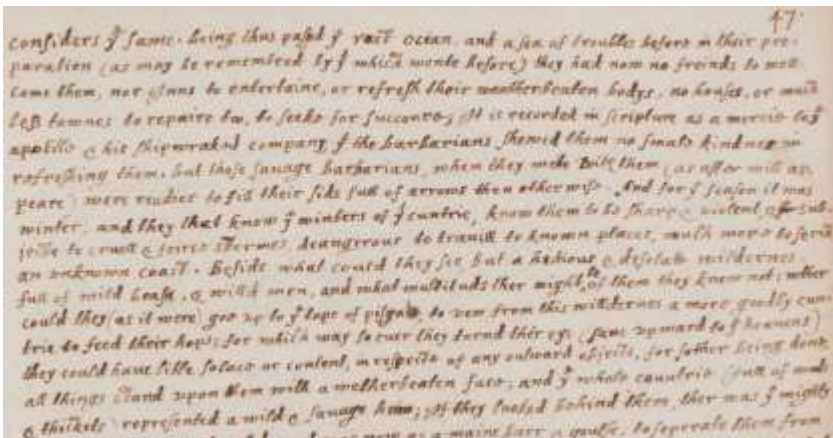 47.
considers yᵉ same. Being thus passed yᵉ vast ocean, and a sea of troubles before in their pre-
paration (as may be remembred by yᵗ which wente before) they had now no freinds to wel-
come them, nor Inns to entertaine, or refresh their weatherbeaten bodys, no houses, or much
less townes to repaire too, to seeke for succoure; It is recorded in scripture as a mercie to yᵉ
apostle & his shipwraked company, yᵗ the barbarians shewed them no smale kindnes in
refreshing them, but these savage barbarians, when they mete with them (as after will ap-
peare) were readier to fill their sids full of arrows then otherwise. And for yᵉ season it was
winter, and they that know yᵉ winters of yᵗ cuntrie, know them to be sharp & violent, & sub-
jecte to cruell & feirce stormes, deangerous to travill to known places, much more to serch
an unknown coast. Besids what could they see but a hidious & desolate wildernes,
full of wild beasts, & willd men, and what multituds ther might be of them they knew not; nether
could they (as it were) goe up to yᵉ tope of pisgah, to vew from this willdernes a more goodly cun-
trie to feed their hops; for which way soever they turnd their eys (save upward to yᵉ heavens)
they could have litle solace or content, in respecte of any outward objects, for sumer being done,
all things stand upon them with a wetherbeaten face; and yᵉ whole countrie (full of woods
& thickets) represented a wild & savage heiw; If they looked behind them, ther was yᵉ mighty
as a maine barr & goulfe, to seperate them from